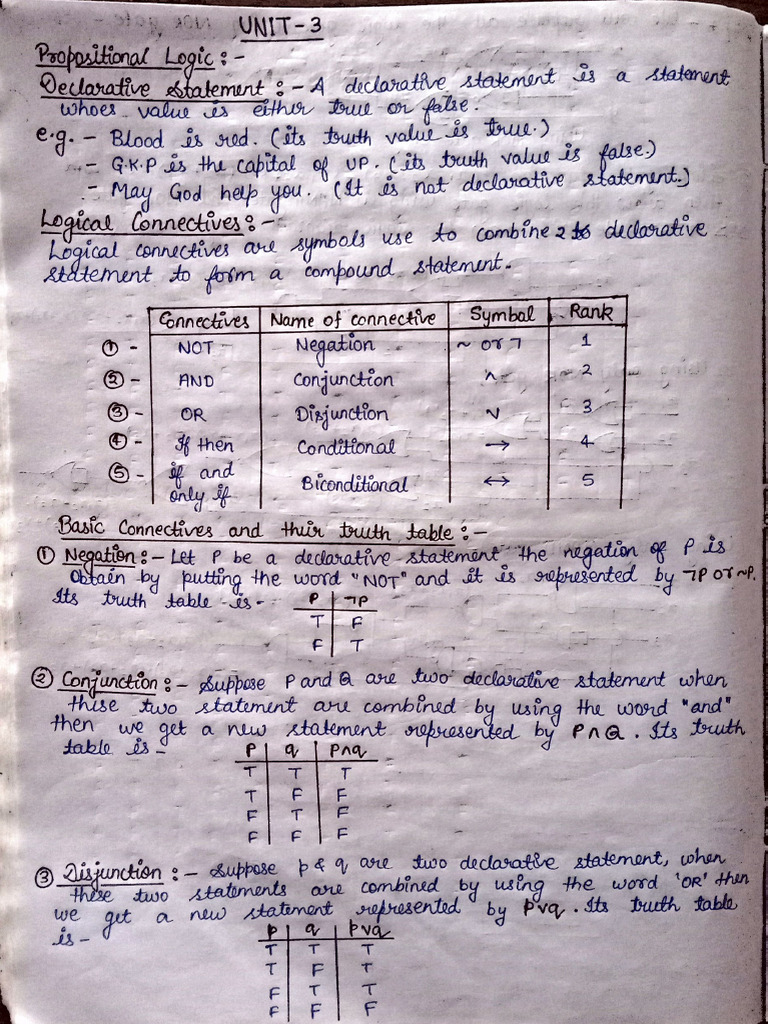 UNIT-3
Propositional Logic :-
Declarative Statement :- A declarative statement is a statement
whoes value is either true or false.
e.g. - Blood is red. (its truth value is true.)
- G.K.P is the capital of UP. (its truth value is false.)
- May God help you. (It is not declarative statement.)
Logical Connectives :-
Logical connectives are symbols use to combine 2 declarative
statement to form a compound statement.
Connectives Name of connective Symbol Rank
① - NOT Negation ~ or ¬ 1
② - AND Conjunction ∧ 2
③ - OR Disjunction ∨ 3
④ - If then Conditional → 4
⑤ - if and only if Biconditional ↔ 5
Basic Connectives and thuir truth table :-
① Negation :- Let P be a declarative statement the negation of P is
obtain by putting the word "NOT" and it is represented by ¬P or ~P.
Its truth table is-
P ¬P
T F
F T
② Conjunction :- Suppose P and Q are two declarative statement when
thise two statement are combined by using the word "and"
then we get a new statement represented by P∧Q. Its truth
table is-
P q P∧q
T T T
T F F
F T F
F F F
③ Disjunction :- Suppose p & q are two declarative statement, when
these two statements are combined by using the word 'OR' then
we get a new statement represented by p∨q. Its truth table
is-
p q p∨q
T T T
T F T
F T T
F F F